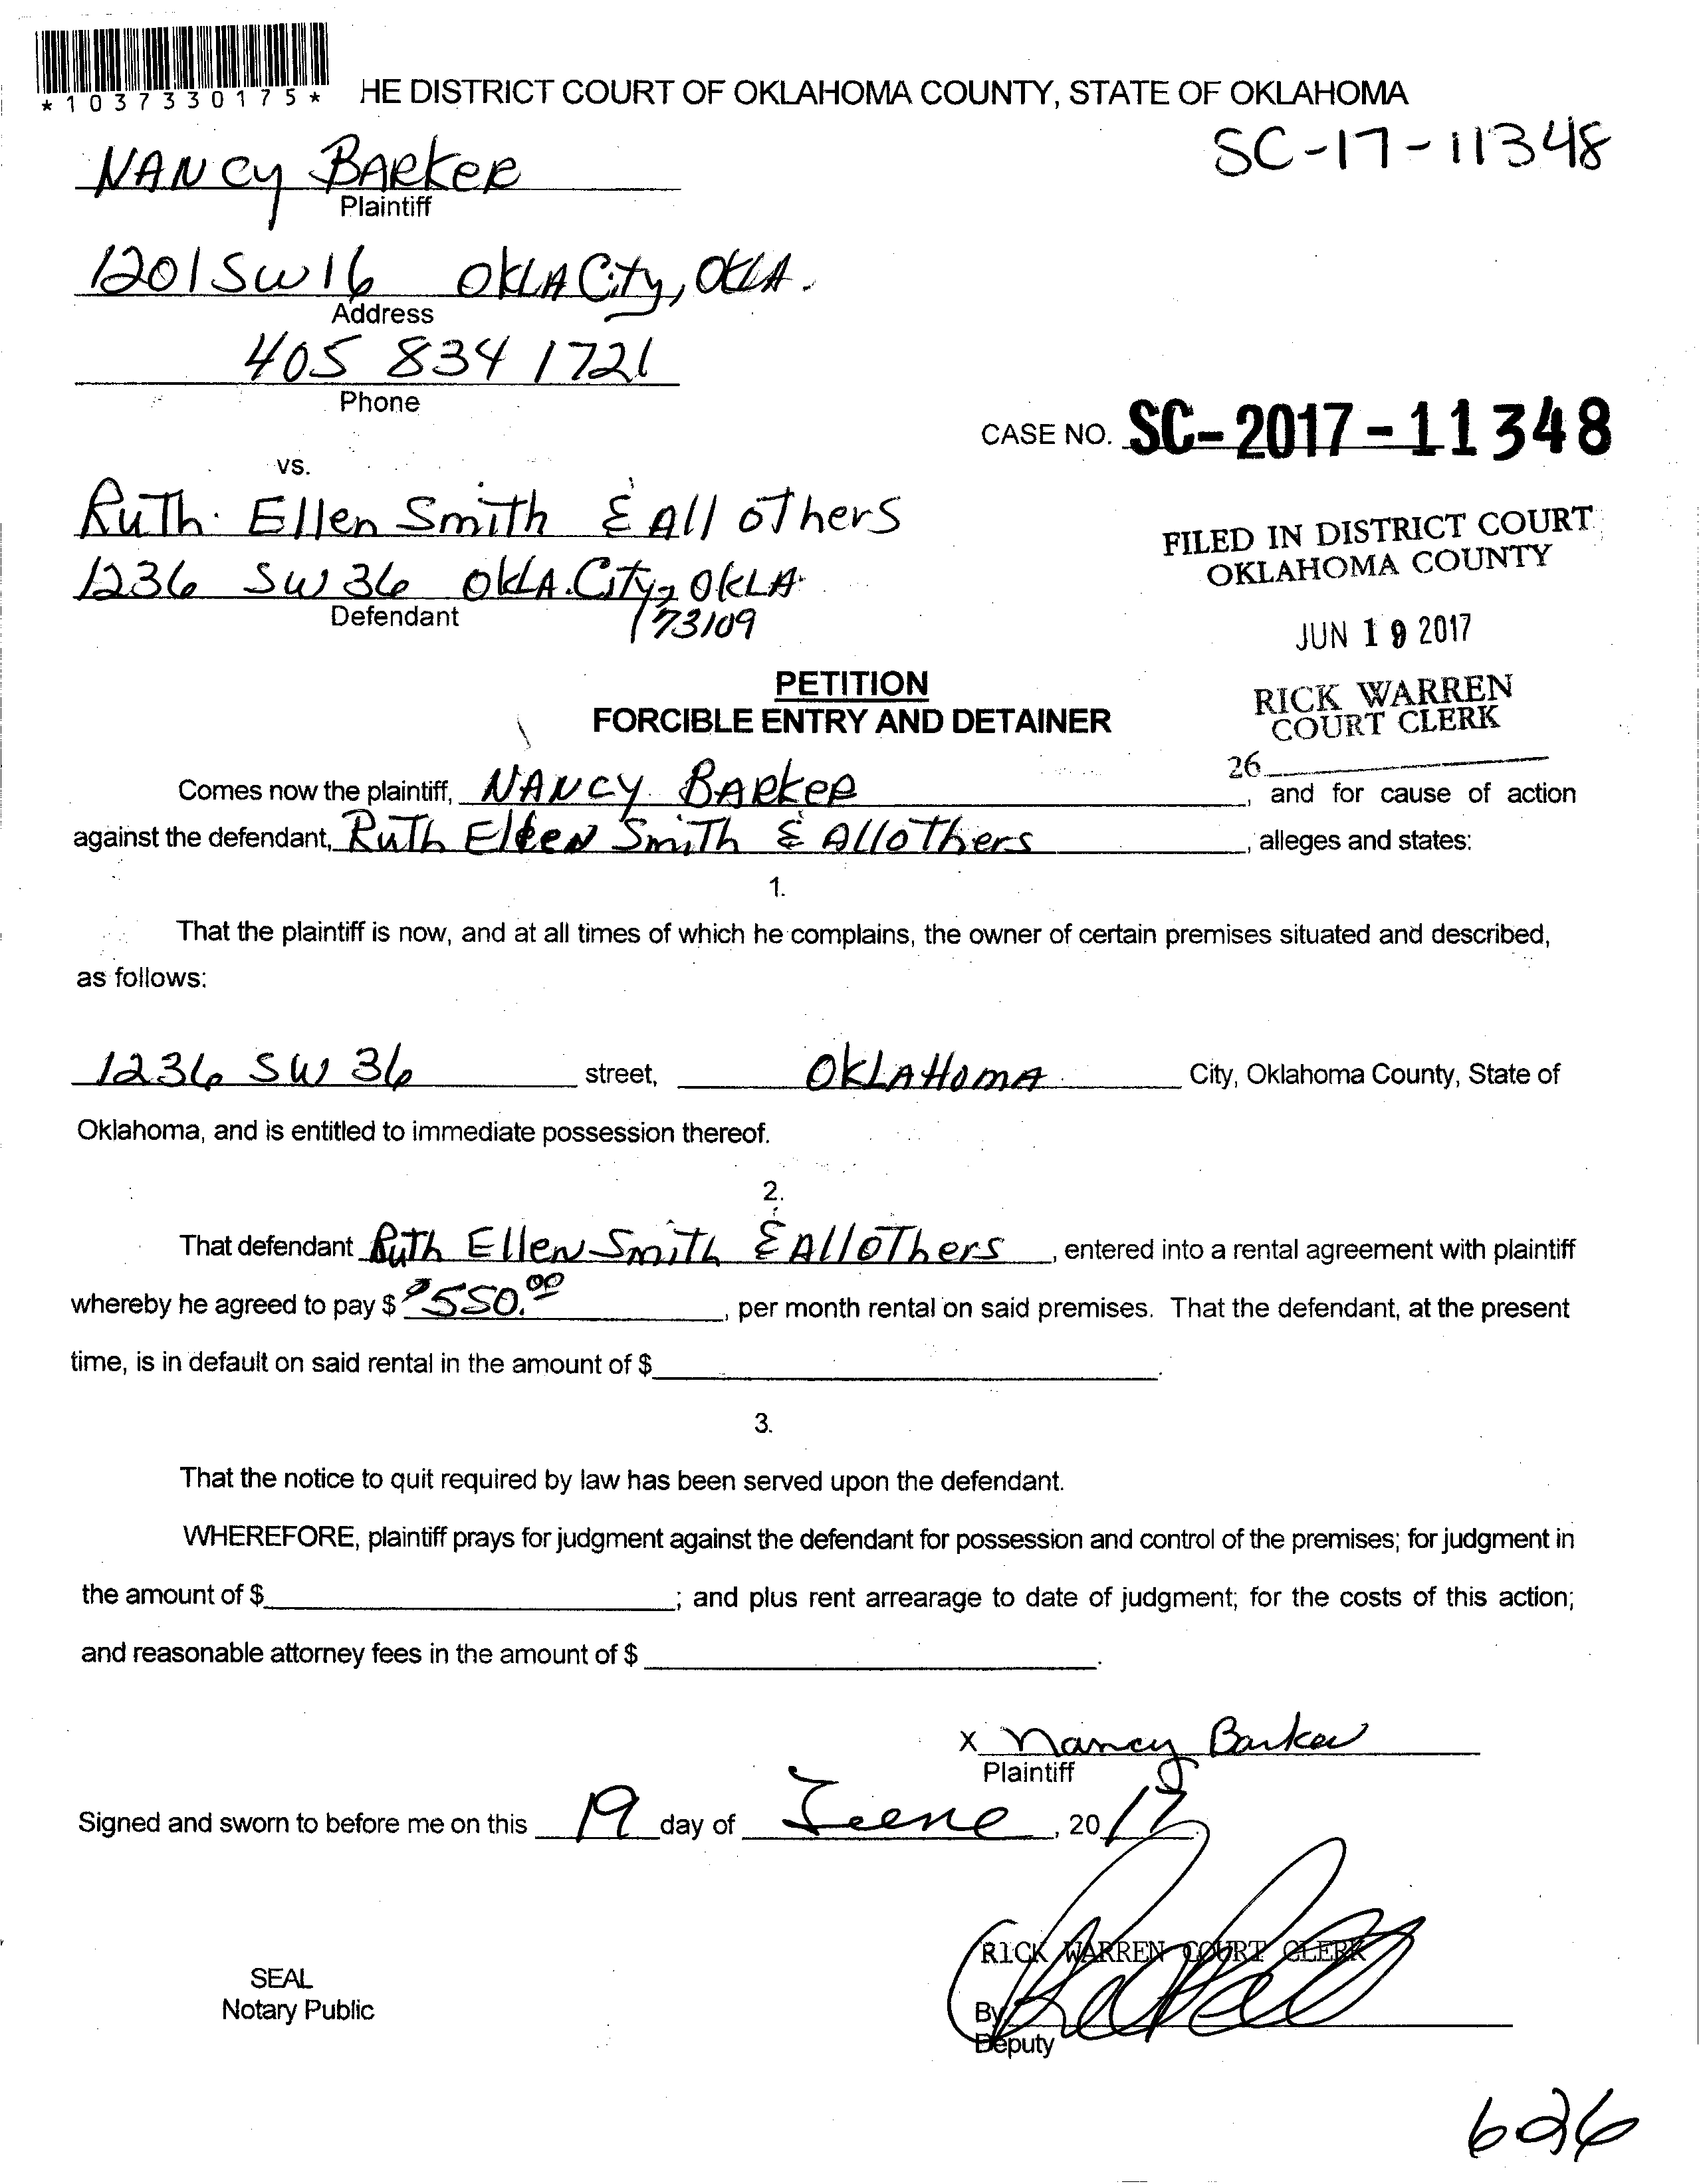 *1037330175*
HE DISTRICT COURT OF OKLAHOMA COUNTY, STATE OF OKLAHOMA
SC-17-11348
NANCY BARKER
Plaintiff
1201 SW 16 OKLA City, OKLA.
Address
405 834 1721
Phone
CASE NO. SC-2017-11348
vs.
Ruth Ellen Smith & All others
1236 SW 36 OKLA. City, OKLA
73109
Defendant
FILED IN DISTRICT COURT
OKLAHOMA COUNTY
JUN 19 2017
RICK WARREN
COURT CLERK
26
PETITION
FORCIBLE ENTRY AND DETAINER
Comes now the plaintiff, NANCY BARKER, and for cause of action
against the defendant, Ruth Ellen Smith & All others, alleges and states:
1.
That the plaintiff is now, and at all times of which he complains, the owner of certain premises situated and described,
as follows:
1236 SW 36 street, OKLAHOMA City, Oklahoma County, State of
Oklahoma, and is entitled to immediate possession thereof.
2.
That defendant Ruth Ellen Smith & All others, entered into a rental agreement with plaintiff
whereby he agreed to pay $ $550.00, per month rental on said premises. That the defendant, at the present
time, is in default on said rental in the amount of $ .
3.
That the notice to quit required by law has been served upon the defendant.
WHEREFORE, plaintiff prays for judgment against the defendant for possession and control of the premises; for judgment in
the amount of $ ; and plus rent arrearage to date of judgment; for the costs of this action;
and reasonable attorney fees in the amount of $ .
X Nancy Barker
Plaintiff
Signed and sworn to before me on this 19 day of June, 2017.
RICK WARREN COURT CLERK
SEAL
Notary Public
By
Deputy
626